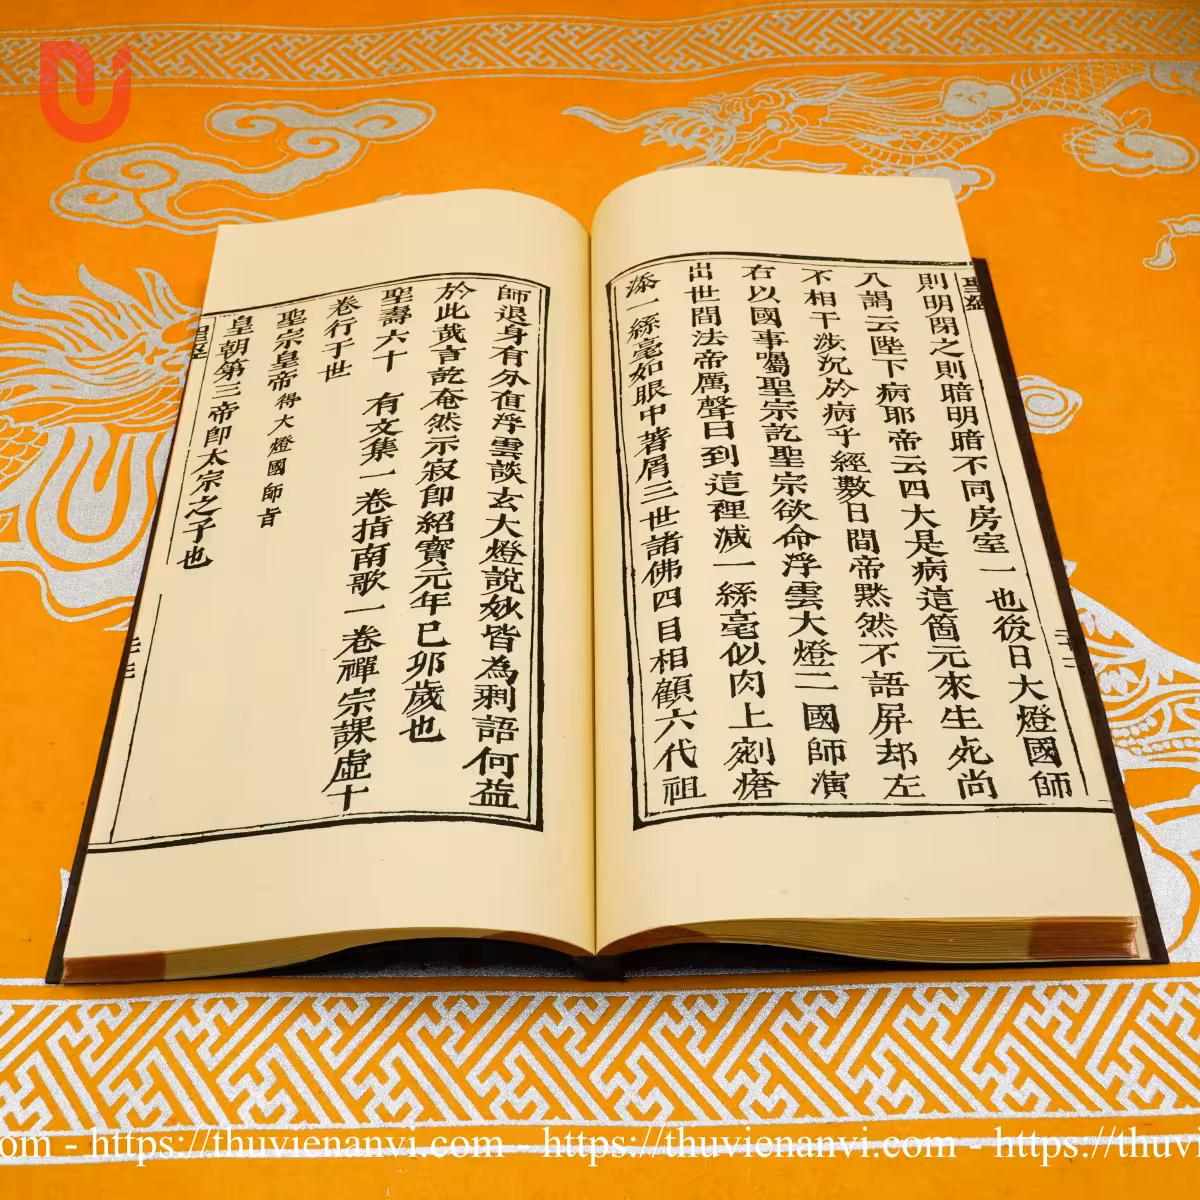 則明閉之則暗明暗不同房室一也後日大燈國師
入謁云陛下病耶帝云四大是病這箇元來生死尚
不相干涉沉於病乎經數日間帝黙然不語屏却左
右以國事囑聖宗訖聖宗欲命浮雲大燈二國師演
出世間法帝厲聲曰到這裡減一絲毫似肉上剜瘡
添一絲毫如眼中著屑三世諸佛四目相顧六代祖
師退身有分直浮雲談玄大燈說妙皆為剩語何益
於此哉言訖奄然示寂即紹寶元年己卯歲也
聖壽六十 有文集一卷指南歌一卷禪宗課虛十
卷行于世
聖宗皇帝得大燈國師旨
皇朝第三帝即太宗之子也
.com - https://thuvienanvi.com - https://thuvienanvi.com - https://thuvi